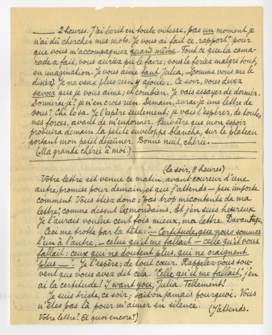 — 2 heures. J'ai écrit en toute vitesse, pas un moment je
n'ai dû chercher mes mots. Je vous ai fait ce "rapport" pour
que vous m'accompagniez quand même. Tout ce que la cama-
rade a fait, vous auriez pu le faire, vous le feriez malgré tout,
en imagination. Je vous aime tant Julia, comme vous me le
disiez? Je ne veux plus rien y ajouter. Ce soir, vous devez
savoir que je vous aime, et combien. Je vais essayer de dormir.
Dormirai je? je n'en crois rien. Demain, aurai je une lettre de
vous? Qui le sait. Je l'espère seulement; je vais l'espérer, de toutes
mes forces, avant de m'endormir. Peut être que mon espoir
produira demain la petite enveloppe blanche, sur le plateau
portant mon petit déjeuner. Bonne nuit, chérie —
(Ma grande chérie à moi)
(le soir, 8 heures)
Votre lettre est venue ce matin, avant coureur d'une
autre, promise pour demain, et que j'attends — peu importe
comment. Vous disiez donc:
lettre, comme disent
Je l'aurais voulue cent fois mieux, ma lettre. Davantage
Ceci me trotte par la tête: — Certitude que nous sommes
l'un à l'autre, — celui qu'il me fallait — celle qu'il vous
fallait: ceux qui ne doutent plus, qui ne craignent
plus — Je l'espère, de tout cœur. Rappelez-vous sou-
vent que vous avez dit cela. "Celle qu'il me fallait", j'en
ai la certitude! I want you, Julia. Tellement!
Je suis triste, ce soir, sait-on jamais pourquoi. Vous
n'êtes pas là pour m'aimer en silence.
J'attends.
Votre lettre? Et quoi encore?